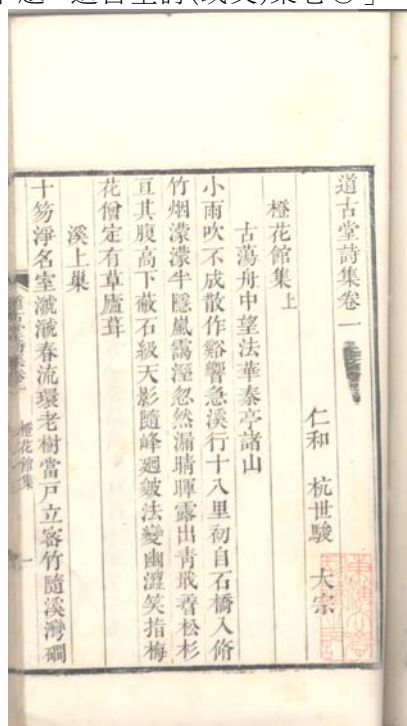 道古堂詩集卷一
仁和　杭世駿　大宗
橙花館集上
古蕩舟中望法華秦亭諸山
小雨吹不成散作谿響急溪行十八里初自石橋入脩
竹烟濛濛半隱嵐靄溼忽然漏晴暉露出靑戢孴松杉
亘其腹高下蔽石級天影隨峰廻皴法變幽澀笑指梅
花僧定有草廬葺
溪上巢
十笏淨名室㶁㶁春流環老樹當戶立密竹隨溪灣磵
橙花館集　一